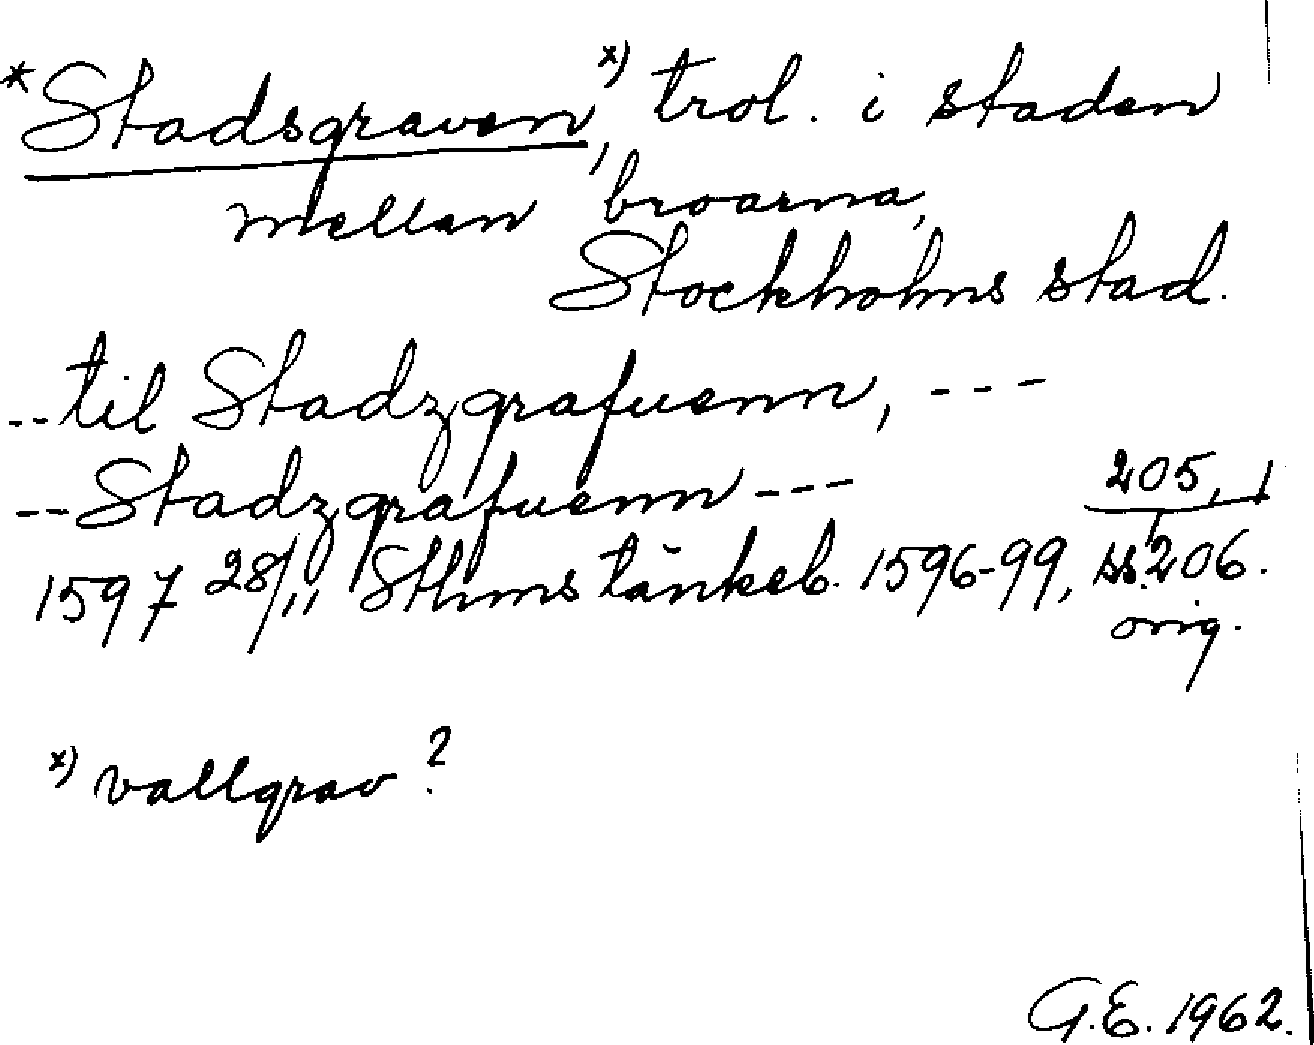 *Stadsgraven,x) trol. i staden
mellan broarna,
Stockholms stad.
--til Stadzgrafuenn, ---
--Stadzgrafuenn---
205,
1597 28/11 Sthms tänkeb. 1596-99, ss. 206.
orig.
x) vallgrav?
G.E. 1962.